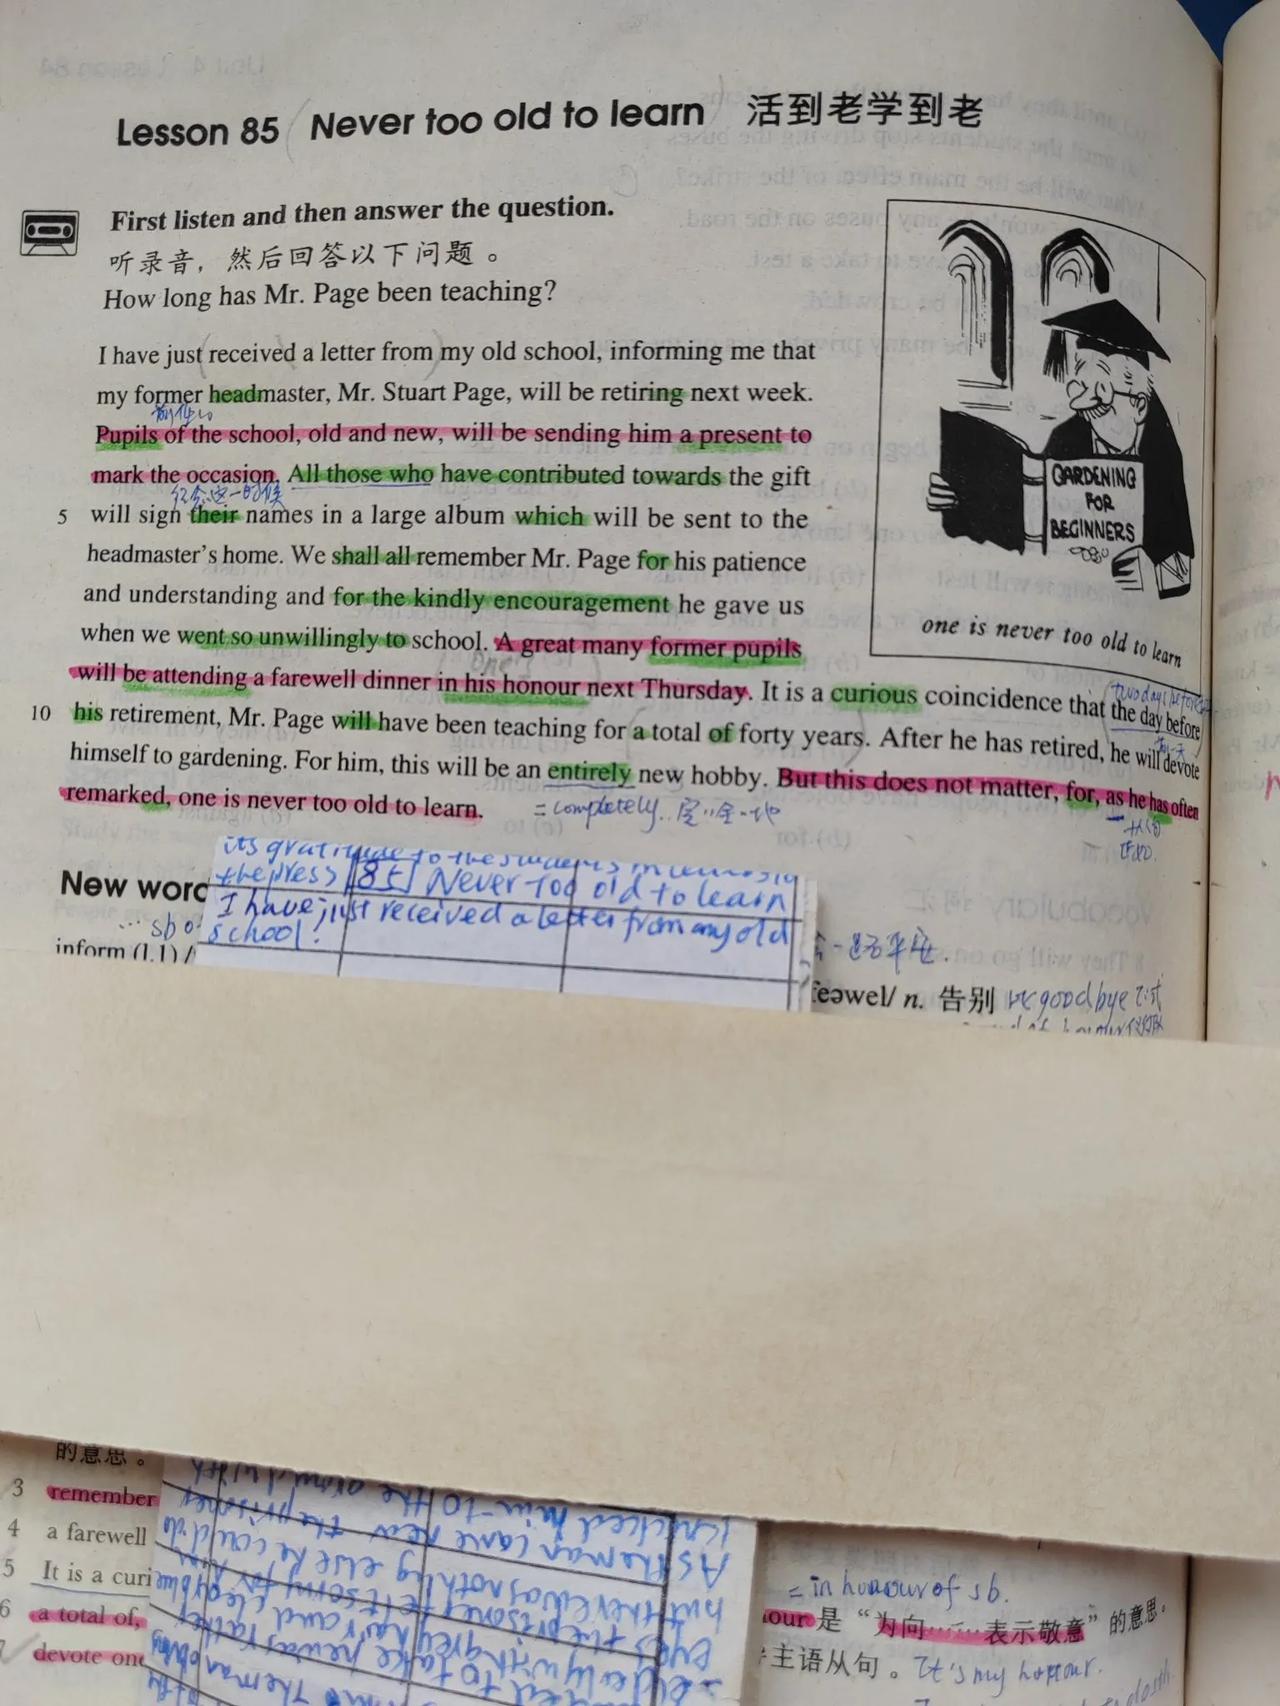 Lesson 85 Never too old to learn 活到老学到老
First listen and then answer the question.
听录音，然后回答以下问题。
How long has Mr. Page been teaching?
I have just received a letter from my old school, informing me that
my former headmaster, Mr. Stuart Page, will be retiring next week.
Pupils of the school, old and new, will be sending him a present to
mark the occasion. All those who have contributed towards the gift
纪念这一时候
5 will sign their names in a large album which will be sent to the
headmaster's home. We shall all remember Mr. Page for his patience
and understanding and for the kindly encouragement he gave us
when we went so unwillingly to school. A great many former pupils
will be attending a farewell dinner in his honour next Thursday. It is a curious coincidence that the day before
10 his retirement, Mr. Page will have been teaching for a total of forty years. After he has retired, he will devote
himself to gardening. For him, this will be an entirely new hobby. But this does not matter, for, as he has often
remarked, one is never too old to learn.
= completely
GARDENING
FOR
BEGINNERS
one is never too old to learn
the press 85 Never too old to learn
I have just received a letter from my old
school.
New word
inform (1.1) /
feəwel/ n. 告别 goodbye
的意思。
3 remember
4 a farewell
5 It is a curi
6 a total of,
devote one
As the man came near the prisoner
but there was nothing else he could do
= in honour of sb.
our 是“为向……表示敬意”的意思。
主语从句。It's my honour.